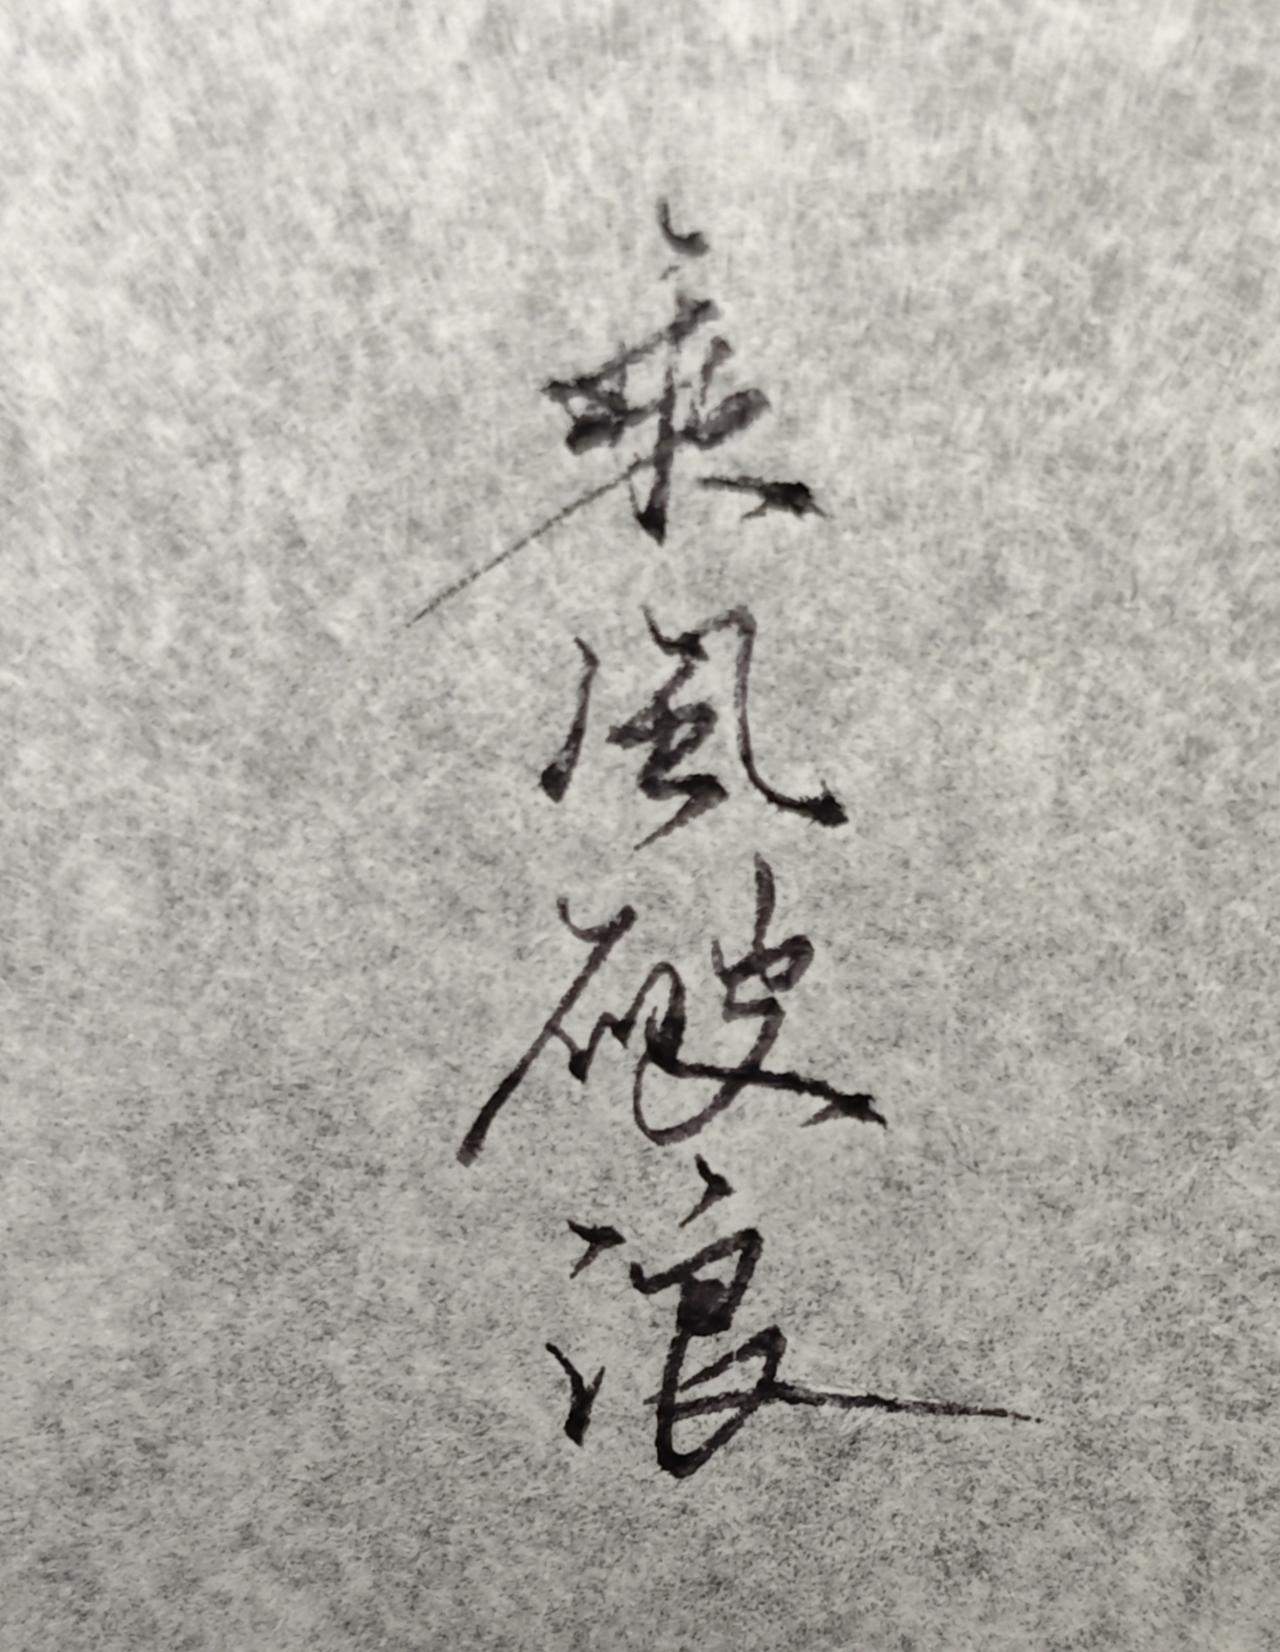 乘風破浪